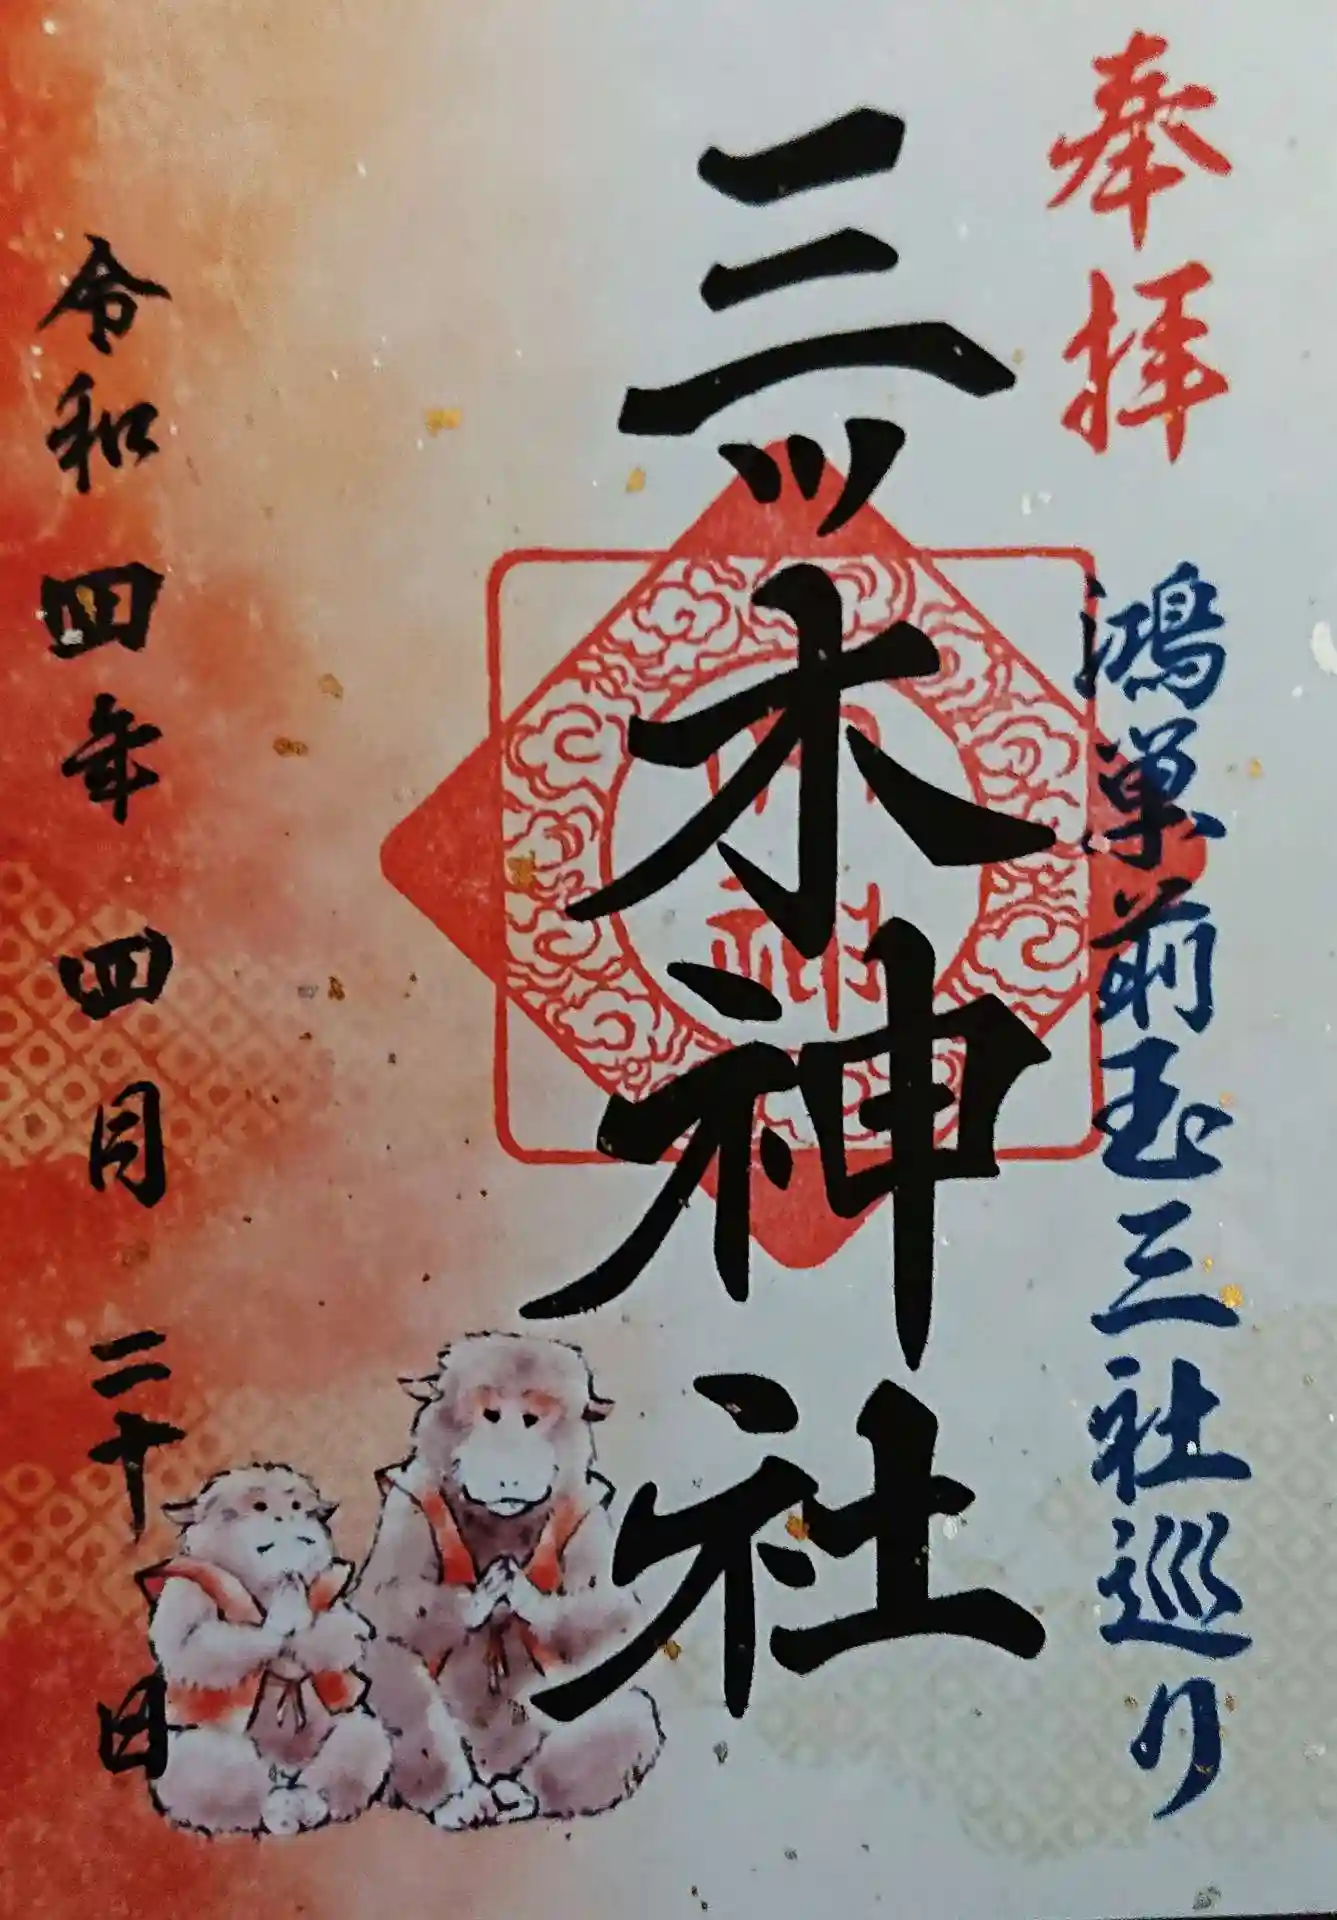 奉拝
鴻巣前玉三社巡り
三ッ木神社
令和四年四月二十日